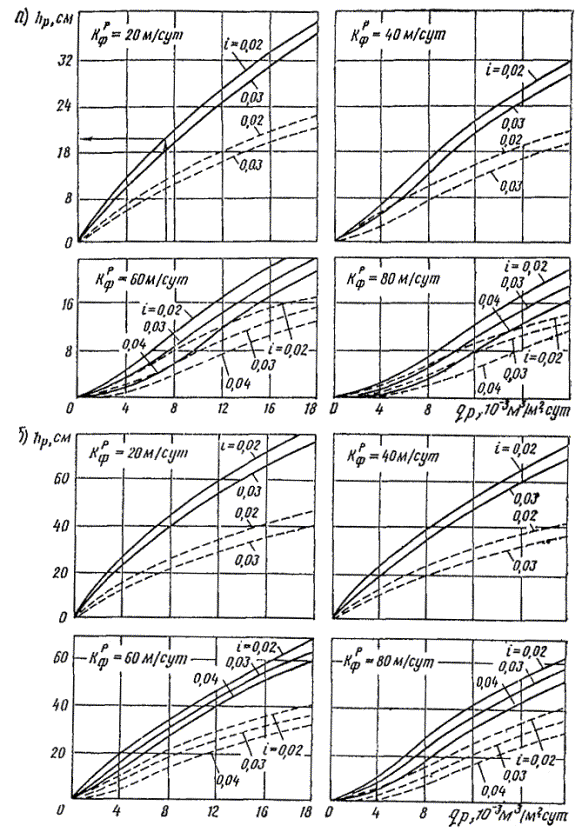 а) hр, см
Kфᴾ = 20 м/сут
i=0,02
0,03
0,02
0,03
32
24
18
8
0
Kфᴾ = 40 м/сут
i=0,02
0,03
0,02
0,03
Kфᴾ = 60 м/сут
i=0,02
0,03
0,04
i=0,02
0,03
0,04
16
8
0 4 8 12 16 18
Kфᴾ = 80 м/сут
i=0,02
0,03
0,04
i=0,02
0,03
0,04
0 4 8 12 16 18
qр, 10⁻³ м³/м² сут
б) hр, см
Kфᴾ = 20 м/сут
i=0,02
0,03
0,02
0,03
60
40
20
0
Kфᴾ = 40 м/сут
i=0,02
0,03
0,02
0,03
Kфᴾ = 60 м/сут
i=0,02
0,03
0,04
i=0,02
0,03
0,04
60
40
20
0
4 8 12 16 18
Kфᴾ = 80 м/сут
i=0,02
0,03
0,04
i=0,02
0,03
0,04
0 4 8 12 16 18
qр, 10⁻³ м³/м² сут